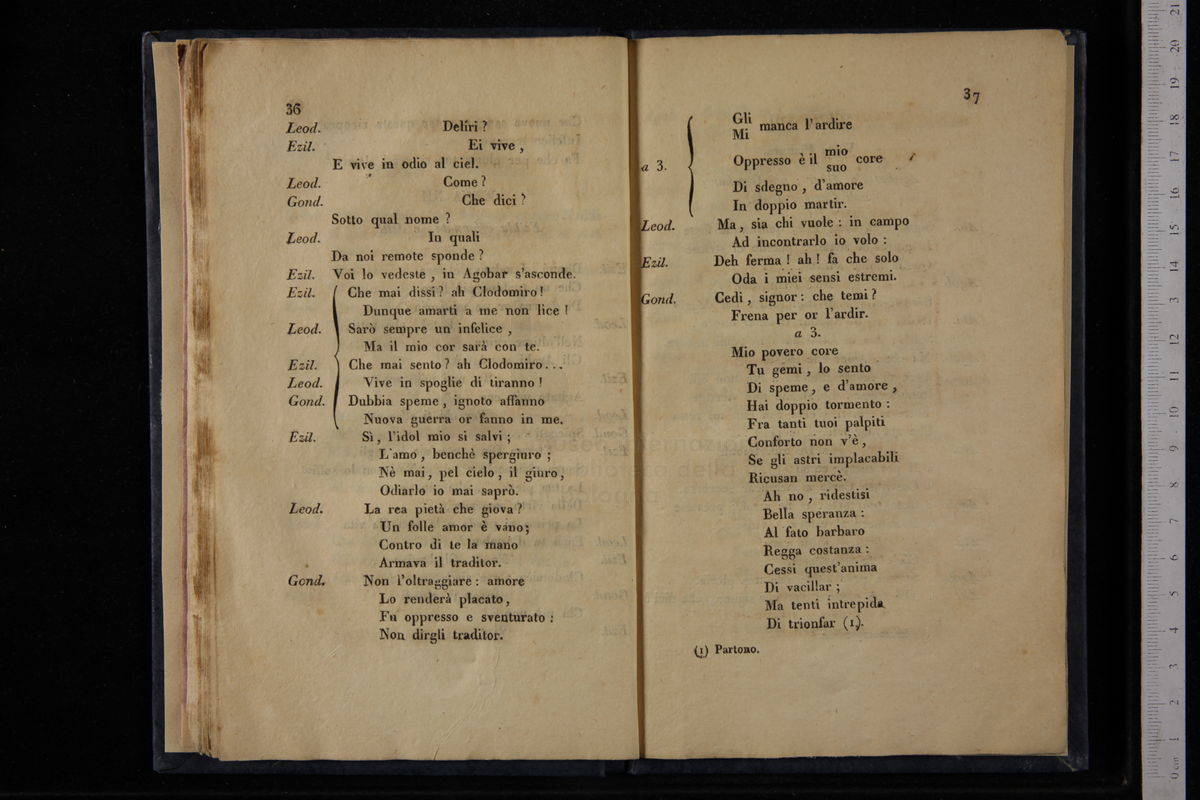 36
Leod. Deliri ?
Ezil. Ei vive ,
E vive in odio al ciel.
Leod. Come ?
Gond. Che dici ?
Sotto qual nome ?
Leod. In quali
Da noi remote sponde ?
Ezil. Voi lo vedeste , in Agobar s'asconde.
Ezil. Che mai dissi ? ah Clodomiro !
Dunque amarti a me non lice !
Leod. Sarò sempre un infelice ,
Ma il mio cor sarà con te.
Ezil. Che mai sento ? ah Clodomiro...
Leod. Vive in spoglie di tiranno !
Gond. Dubbia speme , ignoto affanno
Nuova guerra or fanno in me.
Ezil. Sì , l'idol mio si salvi ;
L'amo , benchè spergiuro ;
Nè mai , pel cielo , il giuro ,
Odiarlo io mai saprò.
Leod. La rea pietà che giova ?
Un folle amor è vano ;
Contro di te la mano
Armava il traditor.
Gond. Non l'oltraggiare : amore
Lo renderà placato ,
Fu oppresso e sventurato :
Non dirgli traditor.
37
a 3.
Gli
Mi manca l'ardire
Oppresso è il mio
suo core
Di sdegno , d'amore
In doppio martir.
Leod. Ma , sia chi vuole : in campo
Ad incontrarlo io volo :
Ezil. Deh ferma ! ah ! fa che solo
Oda i miei sensi estremi.
Gond. Cedi , signor : che temi ?
Frena per or l'ardir.
a 3.
Mio povero core
Tu gemi , lo sento
Di speme , e d'amore ,
Hai doppio tormento :
Fra tanti tuoi palpiti
Conforto non v'è ,
Se gli astri implacabili
Ricusan mercè.
Ah no , ridestisi
Bella speranza :
Al fato barbaro
Regga costanza :
Cessi quest'anima
Di vacillar ;
Ma tenti intrepida
Di trionfar (1).
(1) Partono.